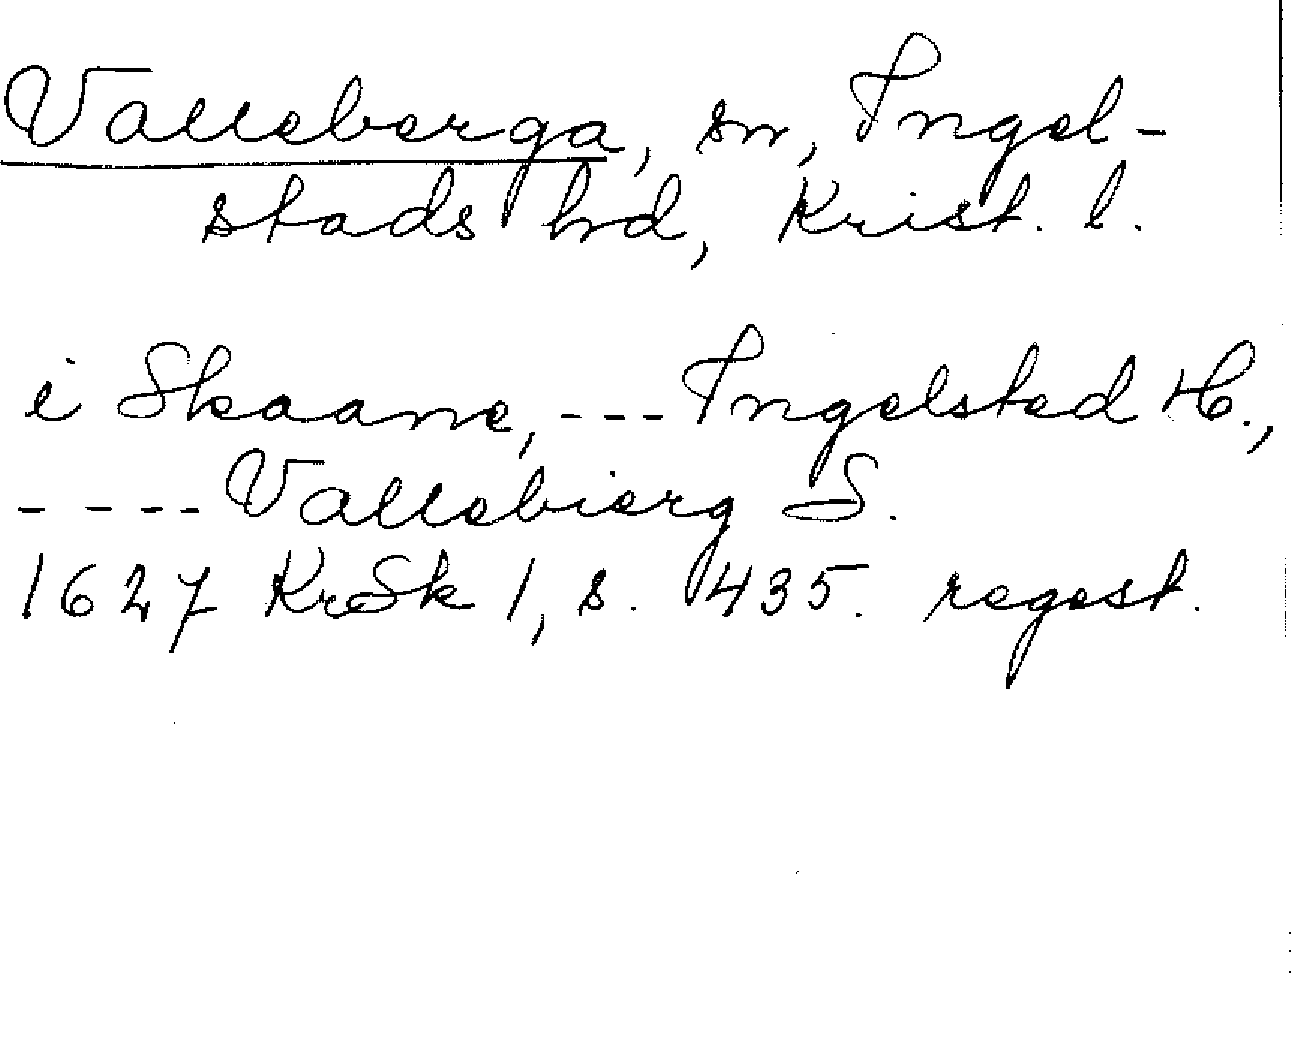 Valleberga, sn, Ingel-
stads hd, Krist. l.
i Skaane, --- Ingelsted H.,
- --- Vallebierg S.
1627 KrSk 1, s. 435. regest.